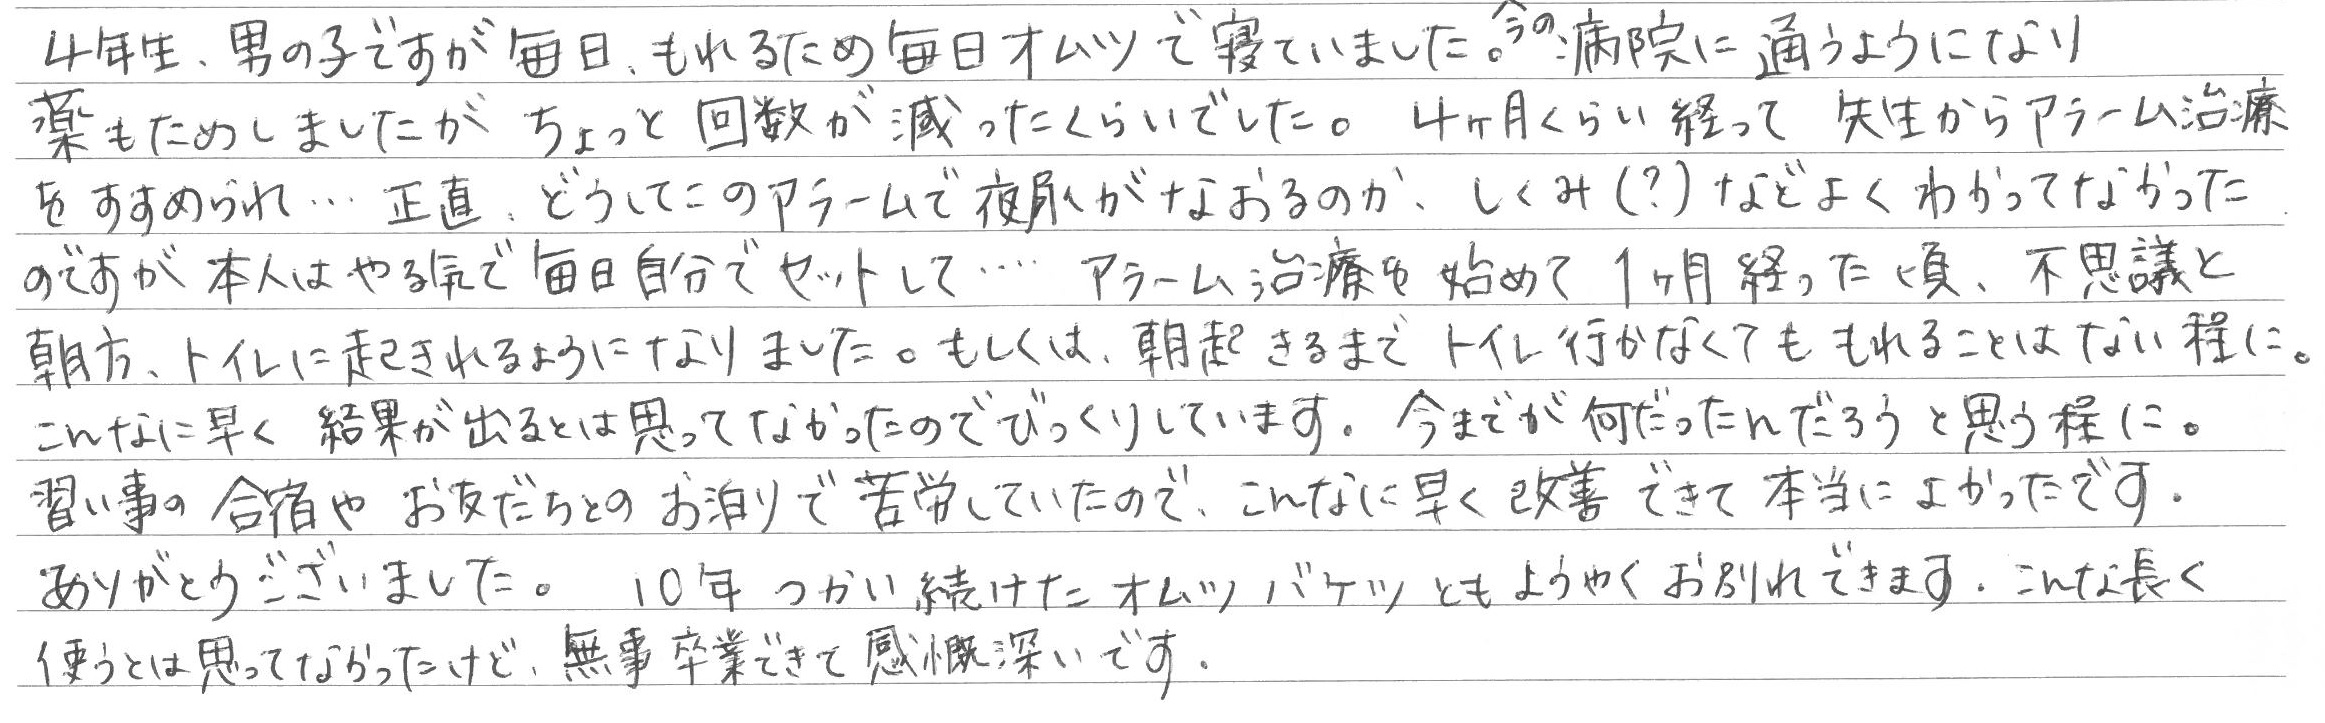 4年生、男の子ですが毎日、もれるため毎日オムツで寝ていました。今の病院に通うようになり
薬もためしましたが ちょっと回数が減ったくらいでした。 4ヶ月くらい経って 先生からアラーム治療
をすすめられ… 正直、どうしてこのアラームで夜尿がなおるのか、しくみ(?)などよくわかってなかった
のですが 本人はやる気で毎日自分でセットして‥‥ アラーム治療を始めて1ヶ月経った頃、不思議と
朝方、トイレに起きれるようになりました。もしくは、朝起きるまでトイレ行かなくてももれることはない程に。
こんなに早く 結果が出るとは思ってなかったのでびっくりしています。今までが何だったんだろうと思う程に。
習い事の合宿や お友だちとのお泊りで苦労していたので、こんなに早く改善できて本当によかったです。
ありがとうございました。 10年つかい続けたオムツバケツともようやくお別れできます。こんな長く
使うとは思ってなかったけど、無事卒業できて感慨深いです。